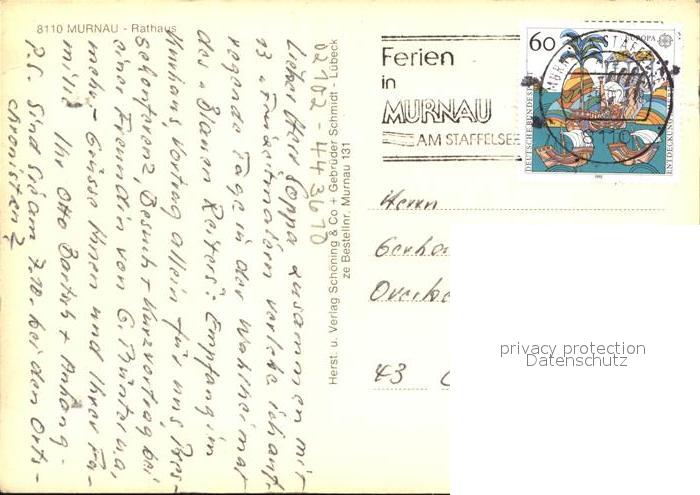 8110 MURNAU - Rathaus
Lieber Herr Goppa zusammen mit
13 "Freizeitmalern verlebe ich auf-
regende Tage in der Wahlheimat
des "Blauen Reiters": Empfang im
Rathaus Vortrag allein für uns Pres-
sekonferenz, Besuch + Kurzvortrag bei
einer Freundin von G. Münter u.a.
mehr - Grüsse Ihnen und Ihrer Fa-
milie
Ihr Otto Bartsch + Anhang.
P.S. Sind Sie am 7.10. bei den Orts-
chronisten?
02102-443610
Herst. u. Verlag Schöning & Co + Gebrüder Schmidt - Lübeck
ze Bestellnr. Murnau 131
Ferien
in
MURNAU
AM STAFFELSEE
60
EUROPA
DEUTSCHE BUNDES
ENTDECKUNG
1992
MURNAU A. STAFFEL
8110
Herrn
Gerha
Overbe
43
privacy protection
Datenschutz